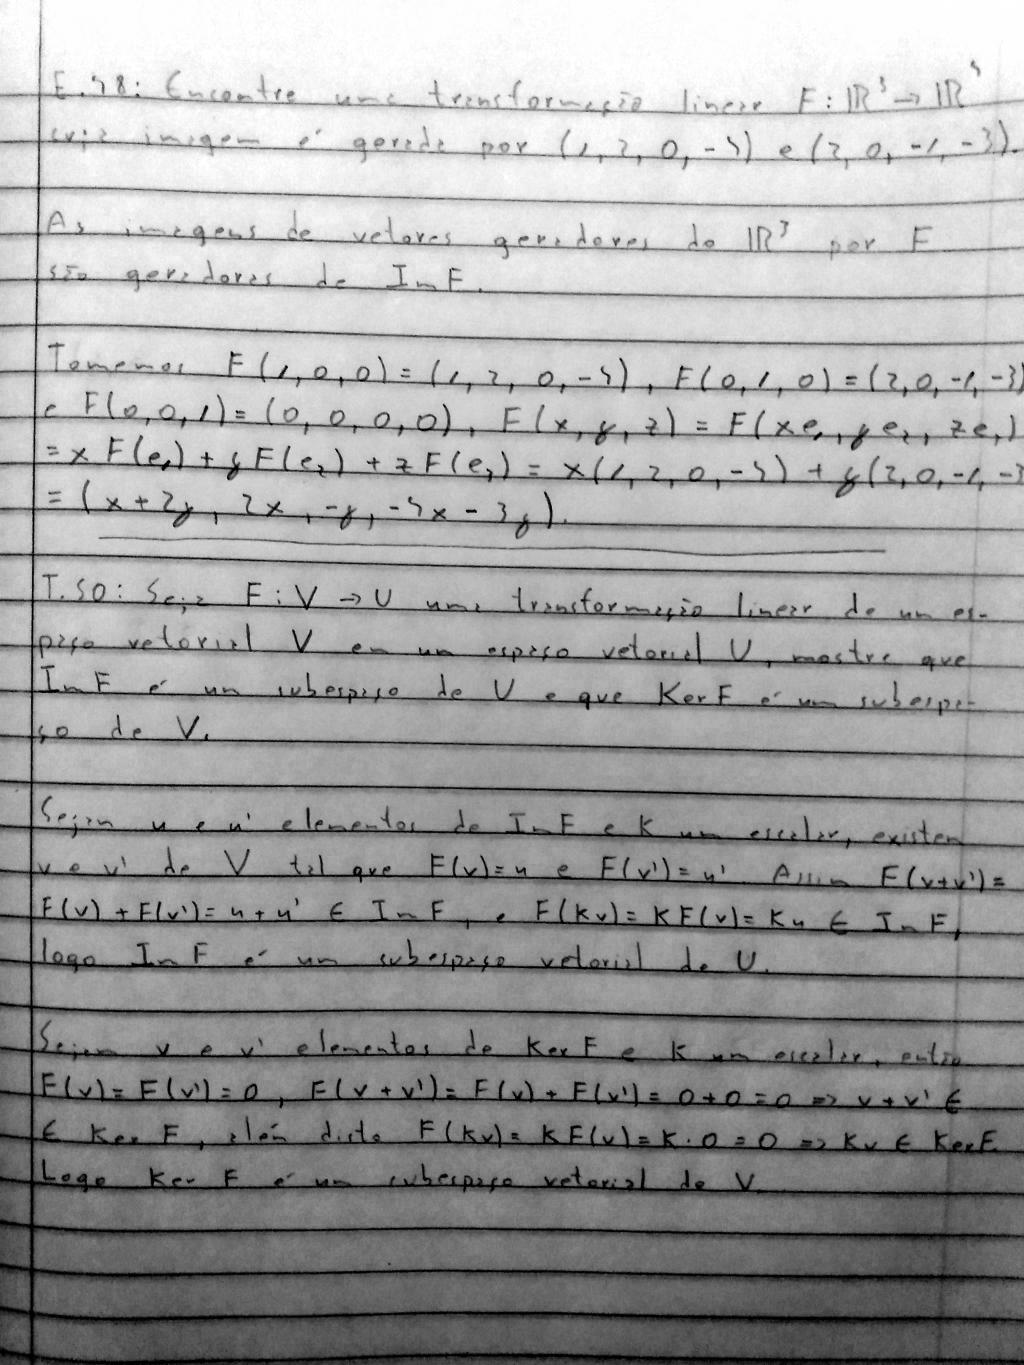 E.48: Encontre uma transformação linear F: IR³ → IR⁴
cuja imagem é gerada por (1, 2, 0, -4) e (2, 0, -1, -3).
As imagens de vetores geradores do IR³ por F
são geradores de Im F.
Tomemos F(1, 0, 0) = (1, 2, 0, -4), F(0, 1, 0) = (2, 0, -1, -3)
e F(0, 0, 1) = (0, 0, 0, 0), F(x, y, z) = F(xe₁, ye₂, ze₃)
= x F(e₁) + y F(e₂) + z F(e₃) = x(1, 2, 0, -4) + y(2, 0, -1, -3
= (x + 2y, 2x, -y, -4x - 3y).
T.50: Seja F: V → U uma transformação linear de um es-
paço vetorial V em um espaço vetorial U, mostre que
Im F é um subespaço de U e que Ker F é um subespa-
ço de V.
Sejam u e u' elementos de Im F e K um escalar, existem
v e v' de V tal que F(v) = u e F(v') = u'. Assim F(v+v') =
F(v) + F(v') = u + u' ∈ Im F, e F(Kv) = K F(v) = Ku ∈ Im F,
logo Im F é um subespaço vetorial de U.
Sejam v e v' elementos de Ker F e K um escalar, então
F(v) = F(v') = 0, F(v + v') = F(v) + F(v') = 0 + 0 = 0 => v + v' ∈
∈ Ker F, além disto F(Kv) = K F(v) = K · 0 = 0 => Kv ∈ Ker F.
Logo Ker F é um subespaço vetorial de V.